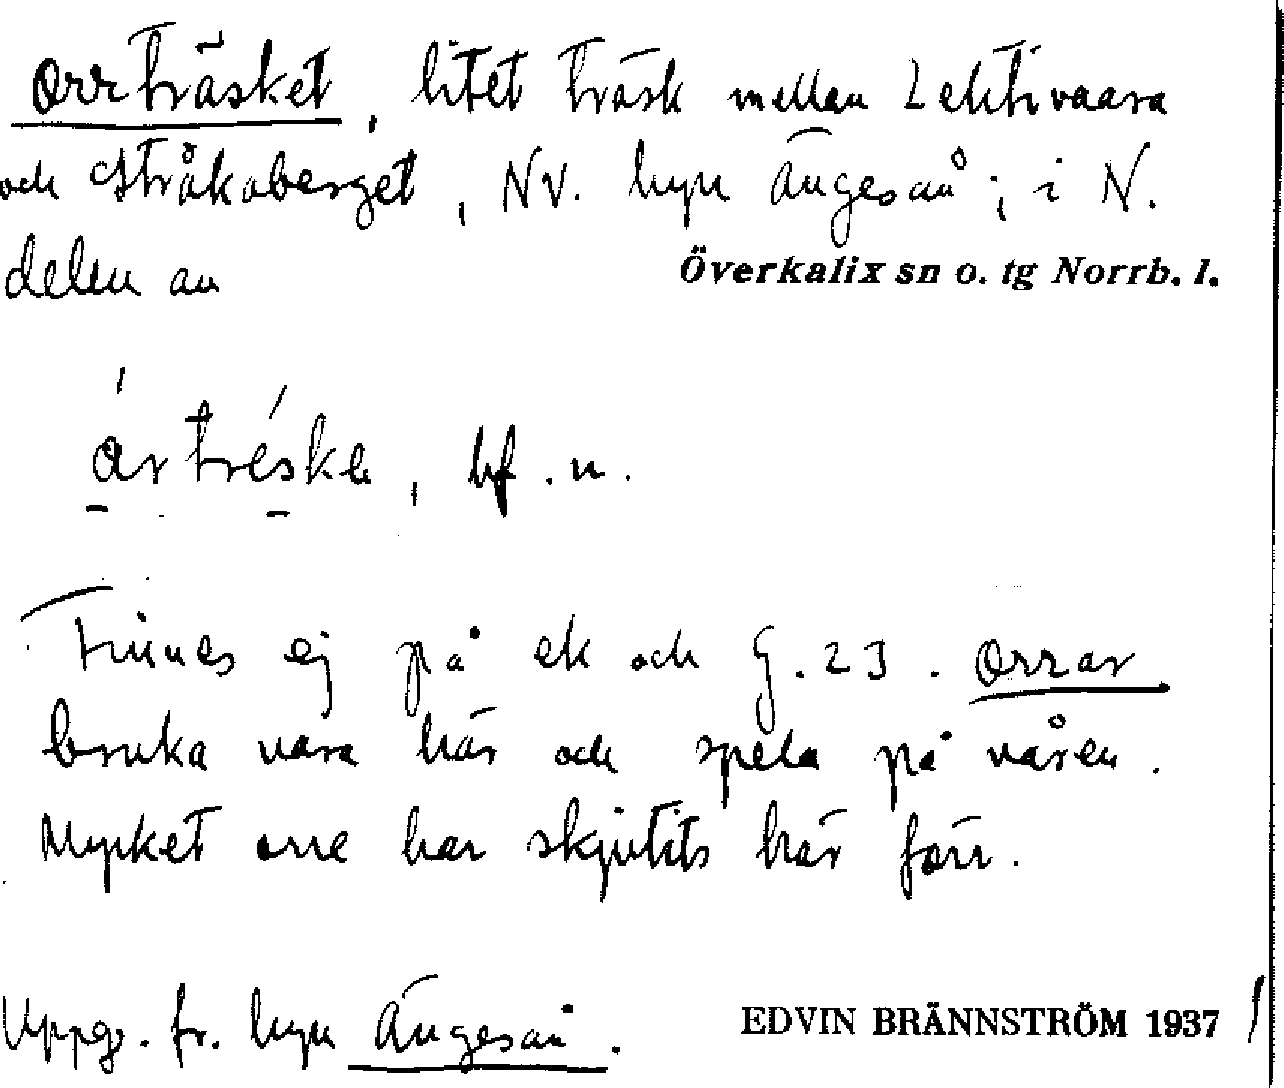 Orrträsket, litet träsk mellan Lehtivaara
och Stråkaberget, NV. byn Ängesån; i N.
delen av
Överkalix sn o. tg Norrb. l.
ártréske, bf. n.
Finnes ej på ek och G. 23. Orrar
bruka vara här och spela på våren.
Mycket orre har skjutits här förr.
Uppg. fr. byn Ängesån.
EDVIN BRÄNNSTRÖM 1937